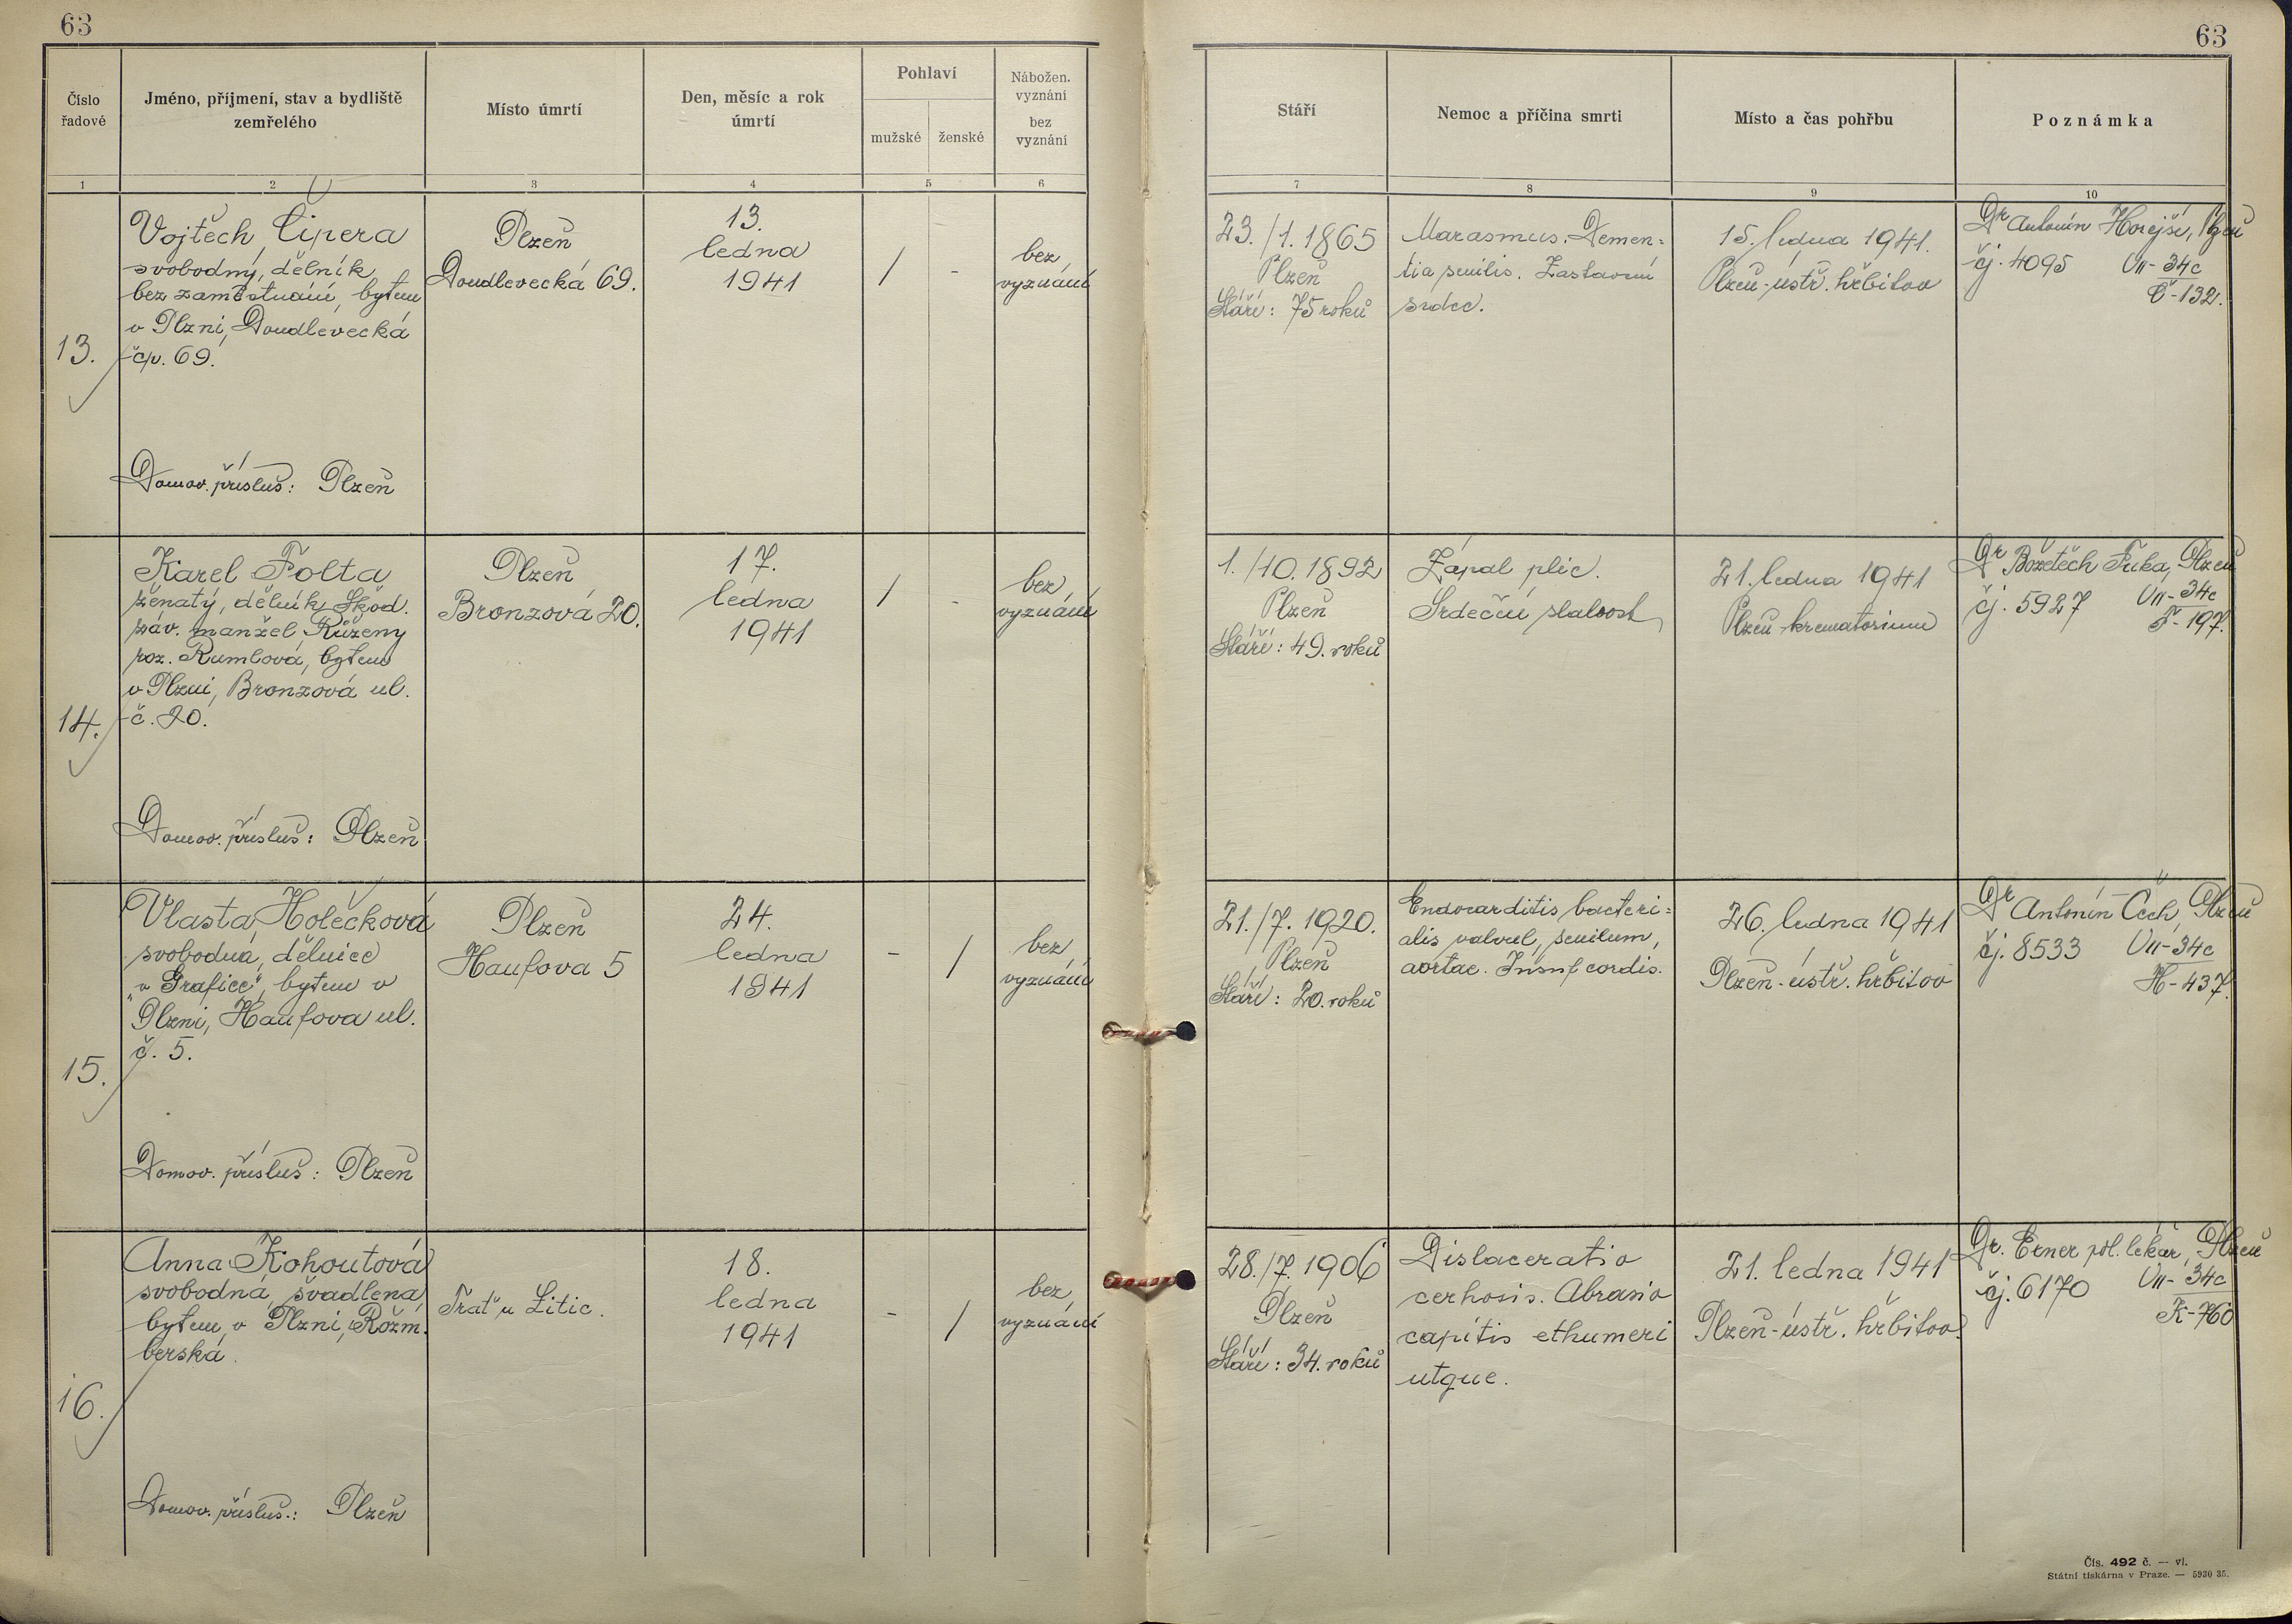 63
63
Číslo řadové
Jméno, příjmení, stav a bydliště zemřelého
Místo úmrtí
Den, měsíc a rok úmrtí
Pohlaví
mužské
ženské
Nábožen. vyznání
bez vyznání
Stáří
Nemoc a příčina smrti
Místo a čas pohřbu
Poznámka
1
2
3
4
5
6
7
8
9
10
13.
Vojtěch Čipera
svobodný, dělník
bez zaměstnání, bytem
v Plzni, Doudlevecká
čp. 69.
Domov. přísluš: Plzeň
Plzeň
Doudlevecká 69.
13.
ledna
1941
/
-
bez
vyznání
23./1. 1865
Plzeň
Stáří: 75 roků
Marasmus. Demen=
tia senilis. Zastavení
srdce.
15. ledna 1941.
Plzeň-ústř. hřbitov
Dr Antonín Horejší, Plzeň
čj. 4095 VII-34c
Č-132.
14.
Karel Folta
ženatý, dělník Škod.
záv. manžel Růženy
roz. Rumlová, bytem
v Plzni, Bronzová ul.
č. 20.
Domov. přísluš: Plzeň
Plzeň
Bronzová 20.
17.
ledna
1941
/
-
bez
vyznání
1./10. 1892
Plzeň
Stáří: 49. roků
Zápal plic.
Srdeční slabost
21. ledna 1941
Plzeň-krematorium
Dr Božetěch Fuka, Plzeň
čj. 5927 VII-34c
F-197.
15.
Vlasta Holečková
svobodná, dělnice
v „Grafice", bytem v
Plzni, Haufova ul.
č. 5.
Domov. přísluš: Plzeň
Plzeň
Haufova 5
24.
ledna
1941
-
/
bez
vyznání
21./7. 1920.
Plzeň
Stáří: 20. roků
Endocarditis bacteri=
alis valvul, senilum,
aortae. Insuf cordis.
26. ledna 1941
Plzeň-ústř. hřbitov
Dr Antonín Čech, Plzeň
čj. 8533 VII-34c
H-437.
16.
Anna Kohoutová
svobodná, švadlena
bytem v Plzni, Rožm.
berská.
Domov. přísluš.: Plzeň
Trať u Litic.
18.
ledna
1941
-
/
bez
vyznání
28./7. 1906
Plzeň
Stáří: 34. roků
Dislaceratio
cerhosis. Abrasio
capitis ethumeri
utque.
21. ledna 1941
Plzeň-ústř. hřbitov.
Dr. Erner pol. lékař, Plzeň
čj. 6170 VII-34c
K-760
Čís. 492 č. — vl.
Státní tiskárna v Praze. — 5930 35.